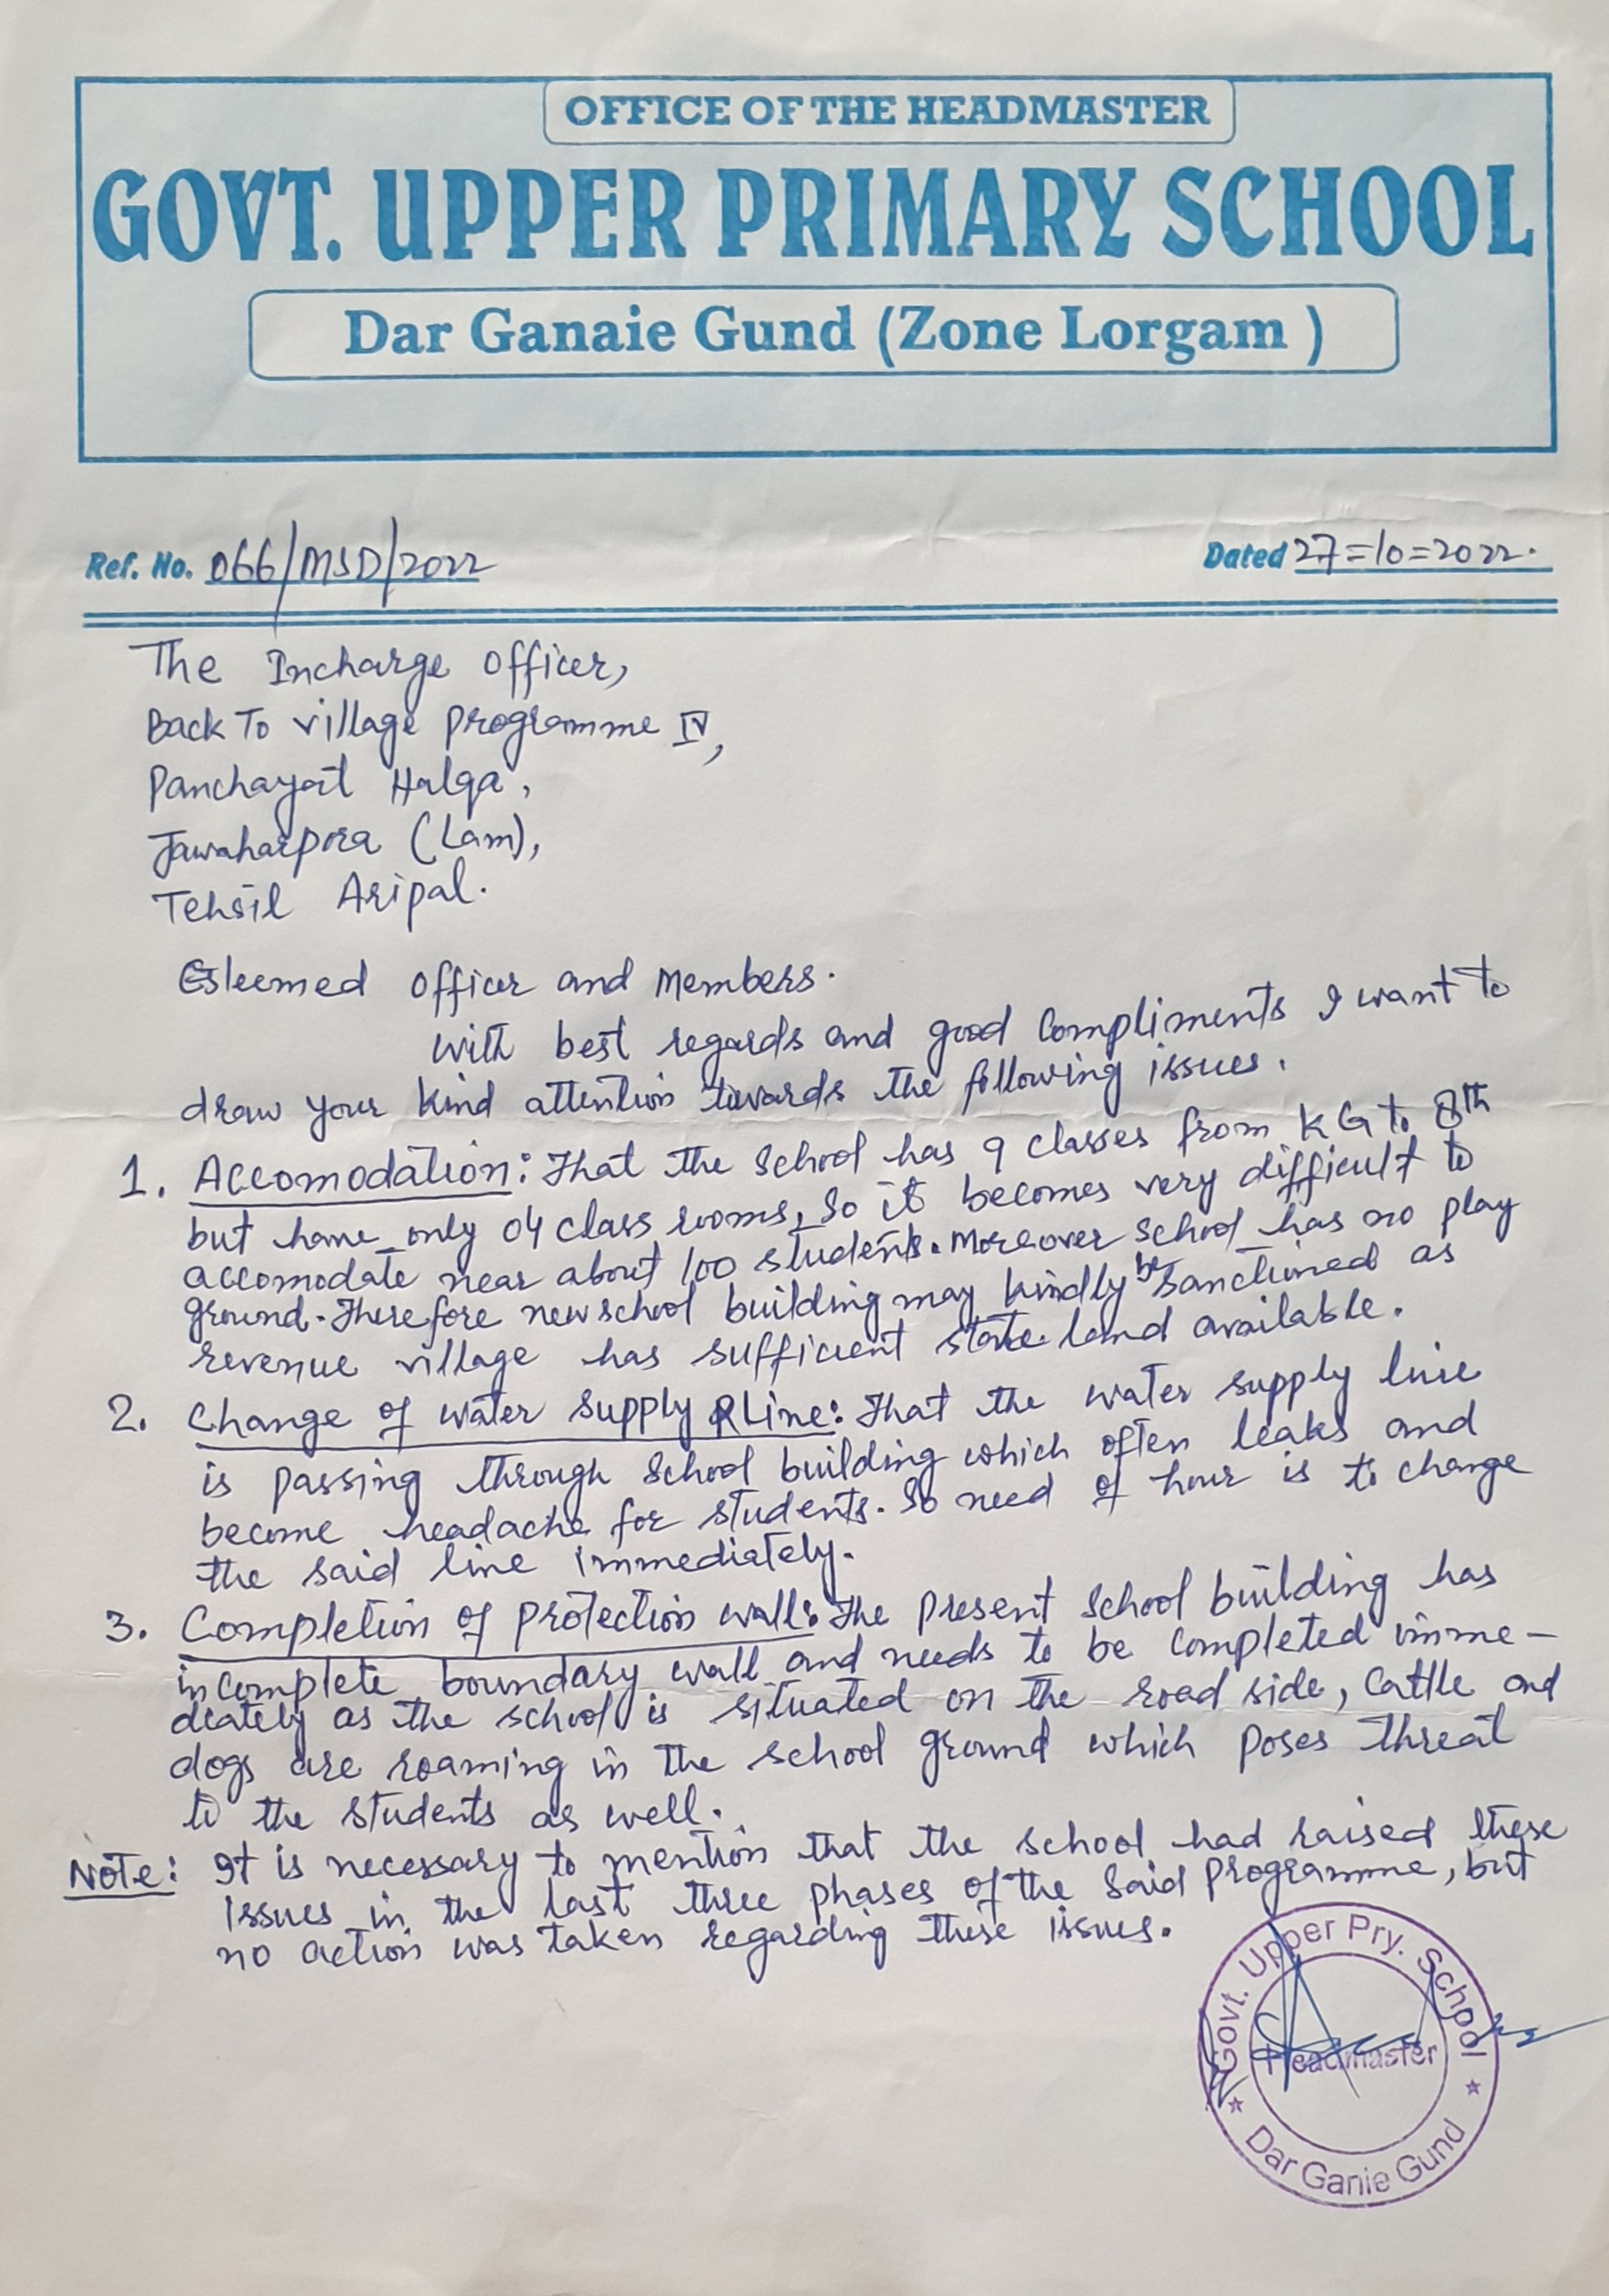 OFFICE OF THE HEADMASTER
GOVT. UPPER PRIMARY SCHOOL
Dar Ganaie Gund (Zone Lorgam )
Ref. No. 066/MSD/2022
Dated 27=10=2022.
The Incharge Officer,
Back To village programme IV,
Panchayat Halqa,
Jawaharpora (Lam),
Tehsil Aripal.
Esteemed officer and Members.
with best regards and good Compliments I want to
draw your kind attention towards the following issues.
1. Accomodation: That the school has 9 classes from KG to 8th
but have only 04 class rooms, so it becomes very difficult to
accomodate near about 100 students. Moreover school has no play
ground. Therefore new school building may kindly be sanctioned as
revenue village has sufficient state land available.
2. Change of water supply Line: That the water supply line
is passing through school building which often leaks and
become headache for students. So need of hour is to change
the said line immediately.
3. Completion of protection wall: The present school building has
incomplete boundary wall and needs to be completed imme-
diately as the school is situated on the road side, cattle and
dogs are roaming in the school ground which poses threat
to the students as well.
Note: It is necessary to mention that the school had raised these
issues in the last three phases of the said programme, but
no action was taken regarding these issues.
Govt. Upper Pry. School
Headmaster
Dar Ganie Gund